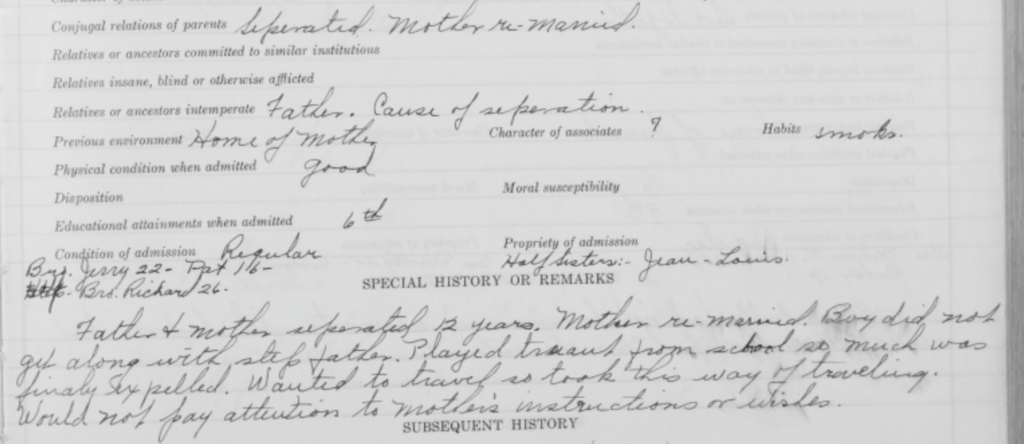 Conjugal relations of parents Seperated. Mother re-married.
Relatives or ancestors committed to similar institutions
Relatives insane, blind or otherwise afflicted
Relatives or ancestors intemperate Father. Cause of seperation.
Previous environment Home of Mother Character of associates ? Habits smoks.
Physical condition when admitted good
Disposition Moral susceptibility
Educational attainments when admitted 6th
Condition of admission Regular Propriety of admission
Bro. Jerry 22- Pat 16- Half Sisters:- Jean - Louis.
Bro. Richard 26-
SPECIAL HISTORY OR REMARKS
Father & mother seperated 12 years. Mother re-married. Boy did not
get along with step father. Played truant from school so much was
finaly expelled. Wanted to travel so took this way of traveling.
Would not pay attention to mother's instructions or wishes.
SUBSEQUENT HISTORY